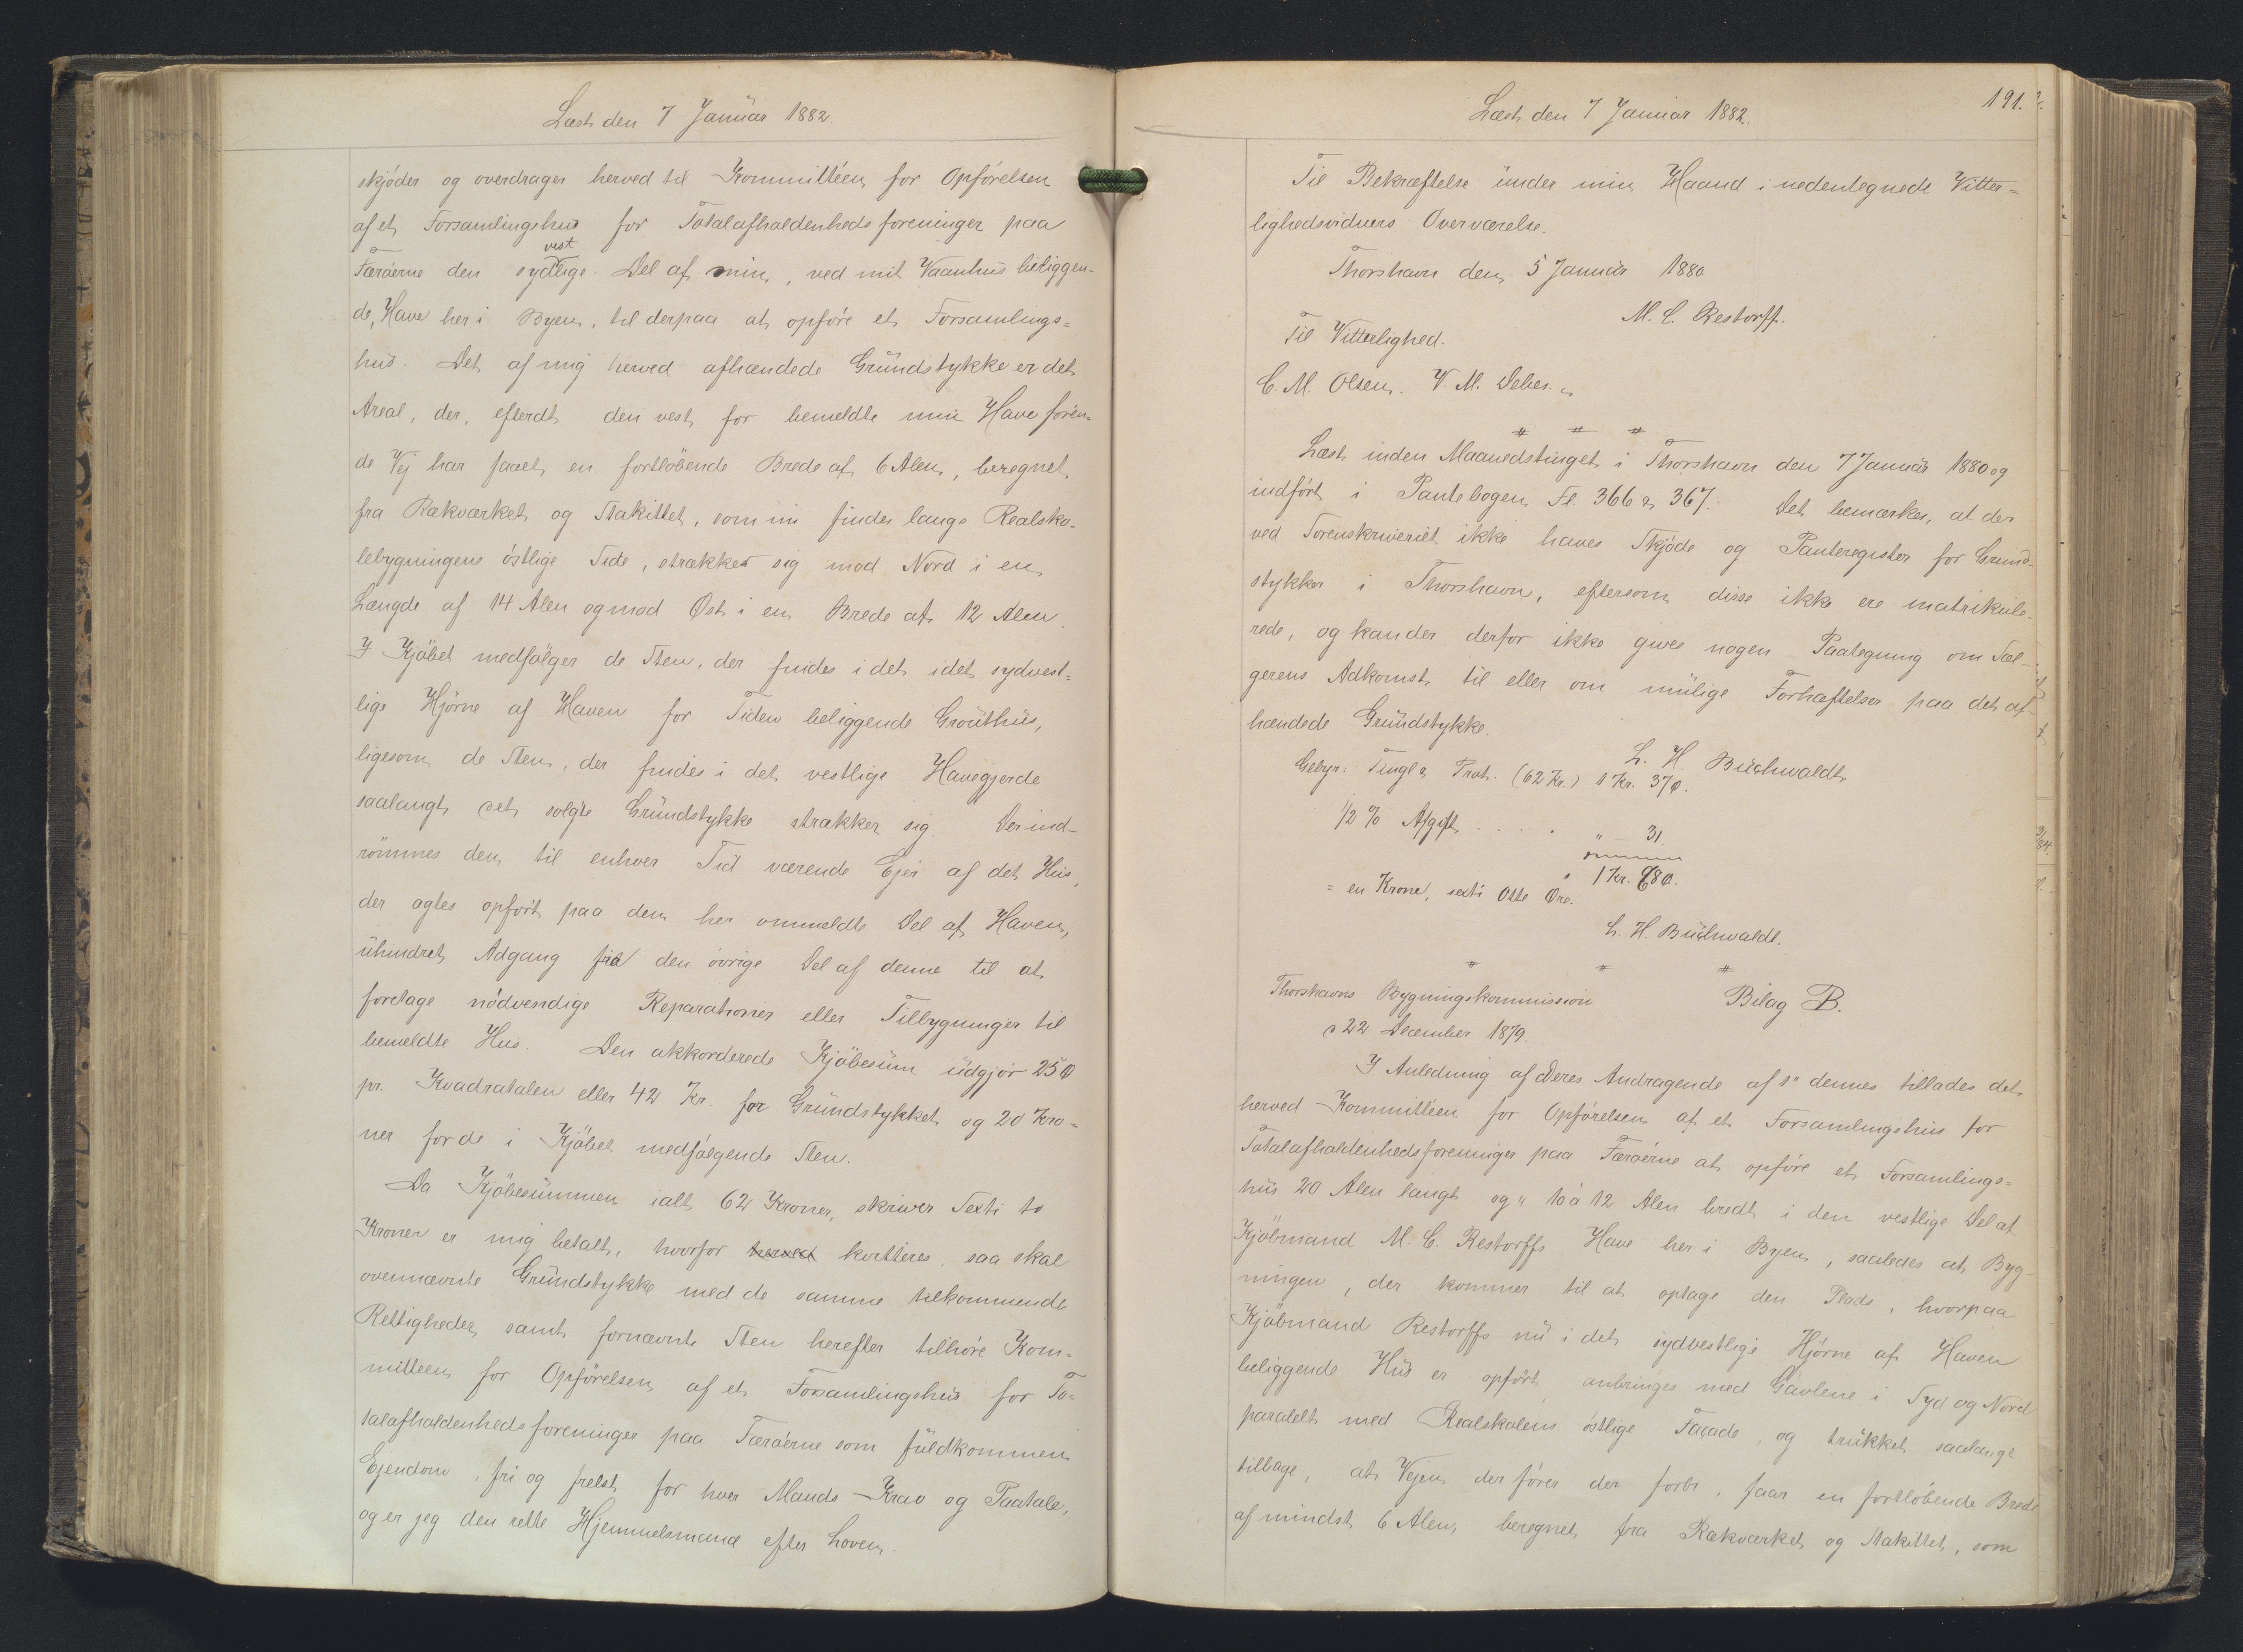 Læst den 7 Januar 1882.
skjøder og overdrager herved til Kommittéen for Opførelsen
af et Forsamlingshus for Totalafholdenhedsforeninger paa
vest
Færøerne den sydlige Del af min, ved mit Vaanhus beliggen-
de, Have her i Byen, til derpaa at opføre et Forsamlings=
hus. Det af mig herved afhændede Grundstykke er det
Areal, der, efterat den vest for bemeldte min Have føren-
de Vej har faaet en fortløbende Brede af 6 Alen, beregnet
fra Rækværket og Stakittet, som nu findes langs Realsko-
lebygningens østlige Side, strækker sig mod Nord i en
Længde af 14 Alen og mod Øst i en Brede af 12 Alen.
I Kjøbet medfølger de Sten, der findes i det i det sydvest=
lige Hjørne af Haven for Tiden beliggende Grouthus,
ligesom de Sten, der findes i det vestlige Havegjerde
saalangt det solgte Grundstykke strækker sig. Der ind-
rømmes den til enhver Tid værende Ejer af det Hus,
der agtes opført paa den her ommeldte Del af Haven,
uhindret Adgang fra den øvrige Del af denne til at
foretage nødvendige Reparationer eller Tilbygninger til
bemeldte Hus. Den akkorderede Kjøbesum udgjør 25 Ø
pr. Kvadratalen eller 42 Kr. for Grundstykket og 20 Kro-
ner for de i Kjøbet medfølgende Sten.
Da Kjøbesummen ialt 62 Kroner, skriver Sexti to
Kroner er mig betalt, hvorfor herved kvitteres, saa skal
ovennævnte Grundstykke med de samme tilkommende
Rettigheder samt fornævnte Sten herefter tilhøre Kom=
mitteen for Opførelsen af et Forsamlingshus for To=
talafholdenhedsforeninger paa Færøerne som fuldkommen
Ejendom, fri og frelst for hver Mands Krav og Paatale,
og er jeg den rette Hjemmelsmand efter Loven.
Læst den 7 Januar 1882.
191.
Til Bekræftelse under min Haand i nedentegnede Vitter=
lighedsvidners Overværelse.
Thorshavn den 5 Januar 1880
M. C. Restorff.
Til Vitterlighed.
C M. Olsen. V. M. Debes.
# # #
Læst inden Maanedstinget i Thorshavn den 7 Januar 1880 og
indført i Pantebogen Fl 366 & 367. Det bemærkes, at der
ved Sorenskriveriet ikke haves Skjøde og Panteregister for Grund-
stykker i Thorshavn, eftersom disse ikke ere matrikule-
rede, og kan der derfor ikke gives nogen Paategning om Sæl-
gerens Adkomst til eller om mulige Forhæftelser paa det af-
hændede Grundstykke.
L. H. Buchwaldt
Gebyr: Tingl & Prot. (62 Kr.) 1 Kr. 37 Ø.
1/2 % Afgift . . . . " 31.
1 Kr. 68 Ø.
= en Krone, sexti Otte Øre.
L. H. Buchwaldt.
# # #
Thorshavns Bygningskommission Bilag B.
d 22 December 1879.
I Anledning af Deres Andragende af 1ste dennes tillades det
herved Kommitteen for Opførelsen af et Forsamlingshus for
Totalafholdenhedsforeninger paa Færøerne at opføre et Forsamlings=
hus 20 Alen langt og 10 à 12 Alen bredt i den vestlige Del af
Kjøbmand M. C. Restorffs Have her i Byen, saaledes at Byg-
ningen, der kommer til at optage den Plads, hvorpaa
Kjøbmand Restorffs nu i det sydvestlige Hjørne af Haven
beliggende Hus er opført anbringes med Gavlene i Syd og Nord
paralelt med Realskolens østlige Facade, og trukket saalangt
tilbage, at Vejen der fører der forbi, faar en fortløbende Brede
af mindst 6 Alen, beregnet fra Rækværket og Stakittet, som